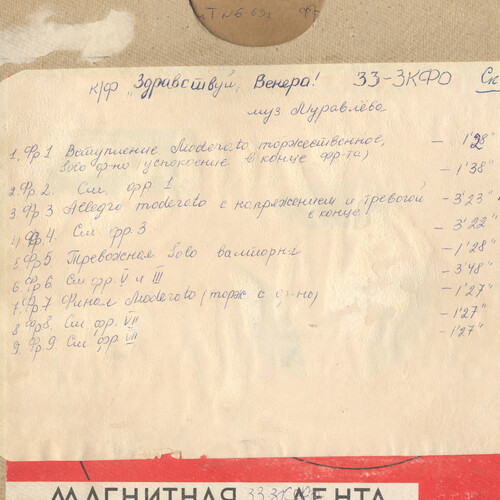 к/ф „Здравствуй, Венера! 33-ЗКФО Ск
муз Муравлёва
1. Фр.1 Вступление Moderato торжественное, – 1'28"
Solo ф-но (успокоение в конце фр-та)
2 Фр 2. См. фр 1 – 1'38"
3 Фр 3 Allegro moderato с напряжением и тревогой – 3'23"
в конце
4. Фр.4. См фр.3 – 3'22"
5. Фр5 Тревожная Solo – 1'28"
6. Фр6. См фр. V и III – 3'48"
7. Фр.7 Финал Moderato (торж с ф-но) – 1'27"
8 Фр8. См фр. VII – 1'27"
9. Фр.9. См фр. VII – 1'27"
МАГНИТНАЯ ЛЕНТА